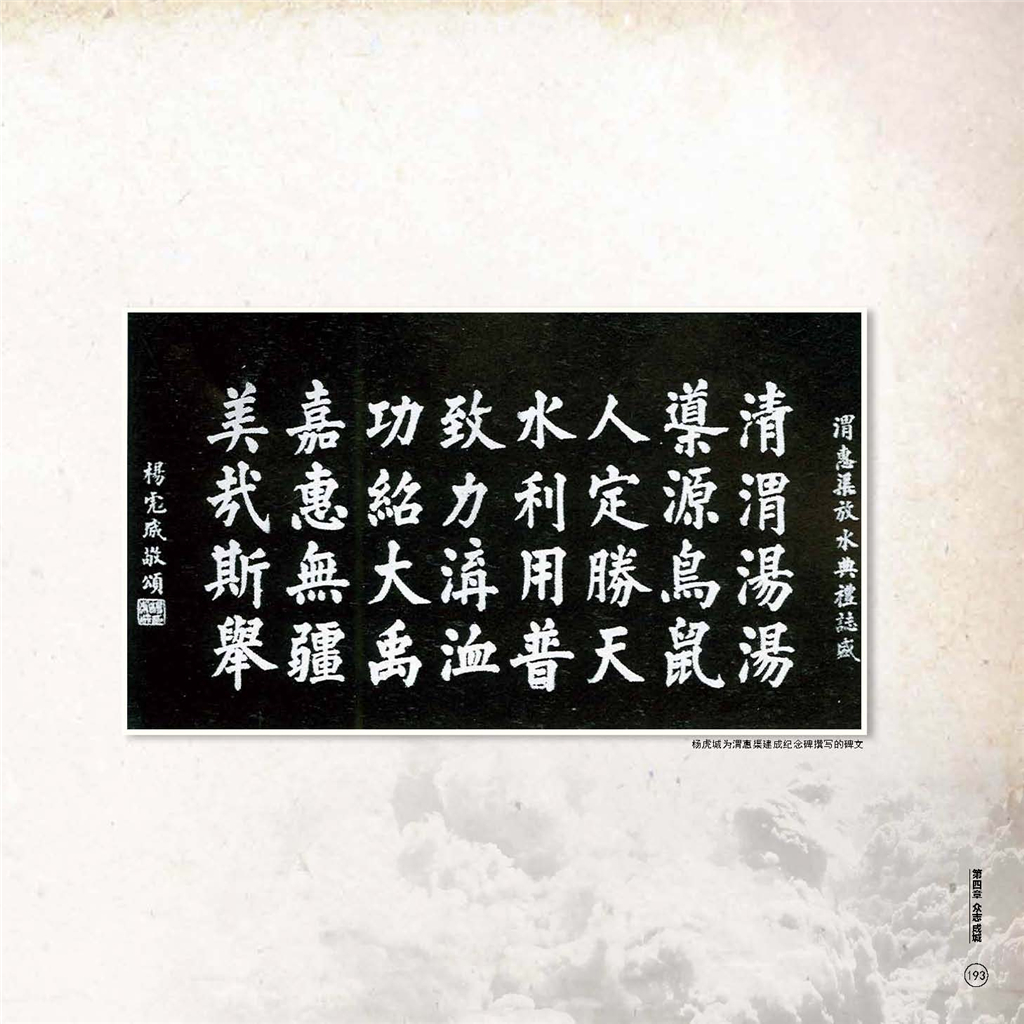 渭惠渠放水典禮誌盛
清渭湯湯
導源鳥鼠
人定勝天
水利用普
致力溝洫
功紹大禹
嘉惠無疆
美哉斯舉
楊虎城敬頌
杨虎城为渭惠渠建成纪念碑撰写的碑文
第四章 众志成城
193